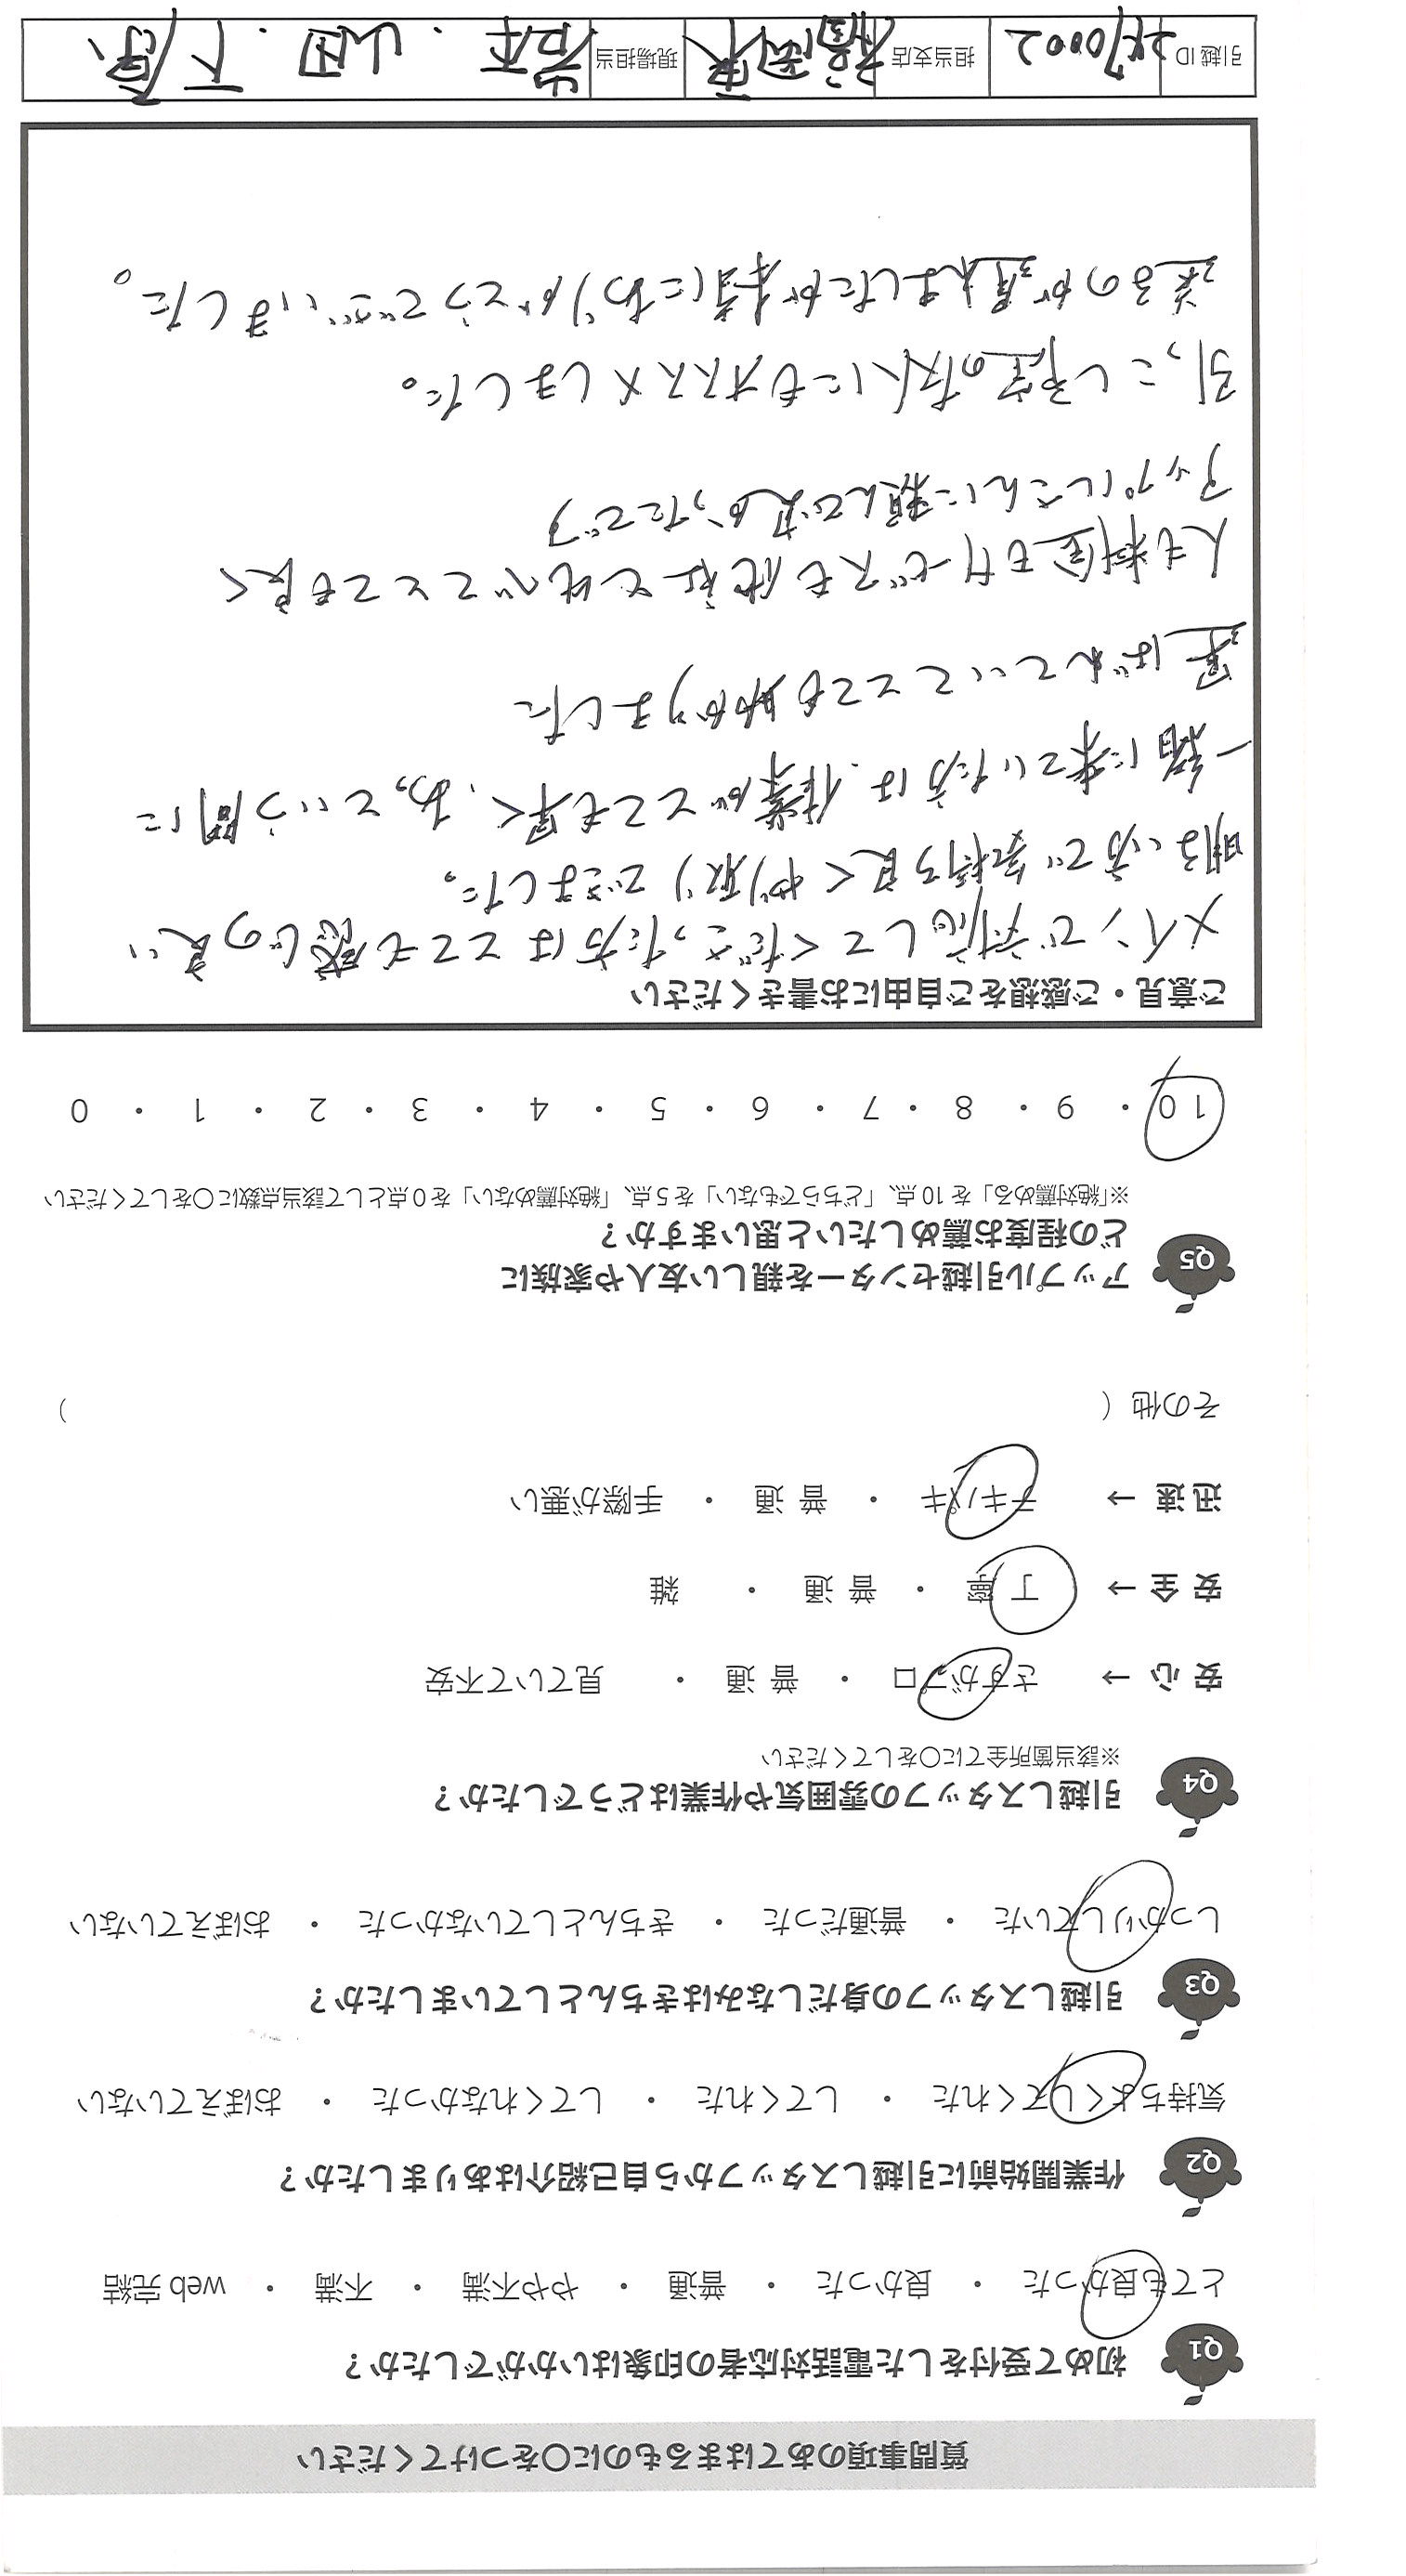 質問事項のあてはまるものに〇をつけてください
Q1 初めて受付をした電話対応者の印象はいかがでしたか？
とても良かった ・ 良かった ・ 普通 ・ やや不満 ・ 不満 ・ web 完結
Q2 作業開始前に引越しスタッフから自己紹介はありましたか？
気持ちよくしてくれた ・ してくれた ・ してくれなかった ・ おぼえていない
Q3 引越しスタッフの身だしなみはきちんとしていましたか？
しっかりしていた ・ 普通だった ・ きちんとしていなかった ・ おぼえていない
Q4 引越しスタッフの雰囲気や作業はどうでしたか？
※該当箇所全てに〇をしてください
安 心 → さすがプロ ・ 普 通 ・ 見ていて不安
安 全 → 丁 寧 ・ 普 通 ・ 雑
迅 速 → テキパキ ・ 普 通 ・ 手際が悪い
その他（ ）
Q5 アップル引越センターを親しい友人や家族に
どの程度お薦めしたいと思いますか？
※「絶対薦める」を 10 点、「どちらでもない」を 5 点、「絶対薦めない」を 0 点として該当点数に〇をしてください
10 ・ 9 ・ 8 ・ 7 ・ 6 ・ 5 ・ 4 ・ 3 ・ 2 ・ 1 ・ 0
ご意見・ご感想をご自由にお書きください
メインで対応してくださった方はとても感じの良い
明るい方で気持ち良くやり取りできました。
一緒に来ていた方は、作業がとても早く、あっという間に
運ばれていてとても助かりました
人も料金もサービスも他社と比べてとても良く
アップルさんに頼んで良かったです
引っこし予定の友人にもオススメしました。
送るのが遅れましたが本当にありがとうございました。
引越 ID 2870002 担当支店 福岡東 現場担当 岩本 ・ 山田 ・ 下原